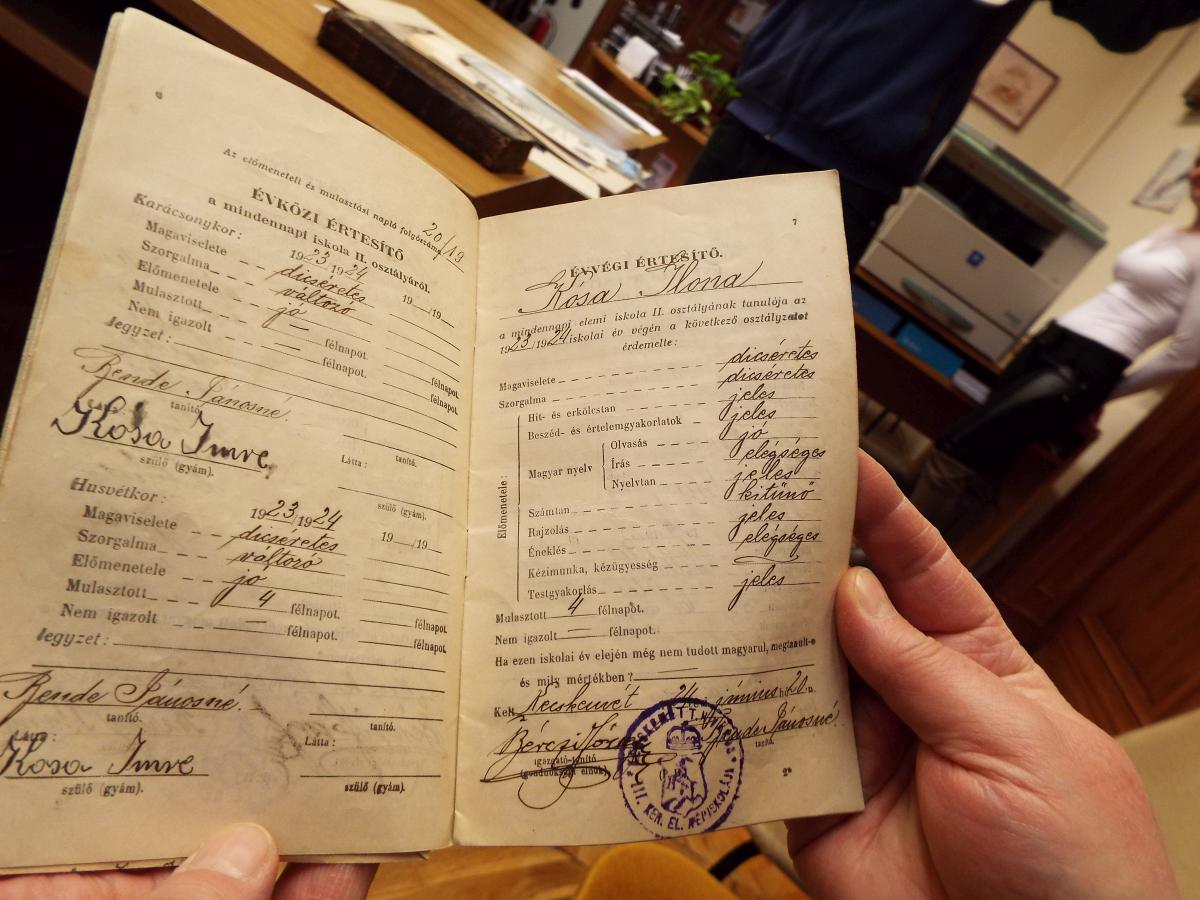 6
Az előmeneteli és mulasztási napló folyószáma 20/19
ÉVKÖZI ÉRTESÍTŐ
a mindennapi iskola II. osztályáról.
Karácsonykor: 1923/1924 19__/19__
Magaviselete dicséretes
Szorgalma változó
Előmenetele jó
Mulasztott — félnapot. félnapot.
Nem igazolt — félnapot. félnapot.
Jegyzet:
Rende Jánosné
tanító. tanító.
Látta:
Kosa Imre
szülő (gyám). szülő (gyám).
Husvétkor: 1923/1924 19__/19__
Magaviselete dicséretes
Szorgalma változó
Előmenetele jó
Mulasztott 4 félnapot. félnapot.
Nem igazolt — félnapot. félnapot.
Jegyzet:
Rende Jánosné.
tanító. tanító.
Látta: Látta:
Kosa Imre
szülő (gyám). szülő (gyám).
7
ÉVVÉGI ÉRTESÍTŐ.
Kósa Ilona
a mindennapi elemi iskola II. osztályának tanulója az
1923/1924 iskolai év végén a következő osztályzatot
érdemelte:
Magaviselete dicséretes
Szorgalma dicséretes
Előmenetele:
Hit- és erkölcstan jeles
Beszéd- és értelemgyakorlatok jeles
Magyar nyelv
Olvasás jó
Írás elégséges
Nyelvtan jeles
Számtan kitünő
Rajzolás jeles
Éneklés elégséges
Kézimunka, kézügyesség
Testgyakorlás jeles
Mulasztott 4 félnapot.
Nem igazolt — félnapot.
Ha ezen iskolai év elején még nem tudott magyarul, megtanult-e
és mily mértékben?
Kelt Kecskemét 24 junius hó 20.-n
Rende Jánosné
igazgató-tanító tanító.
(gondnoksági elnök)
III. KER. EL. NÉPISKOLÁJA
2*